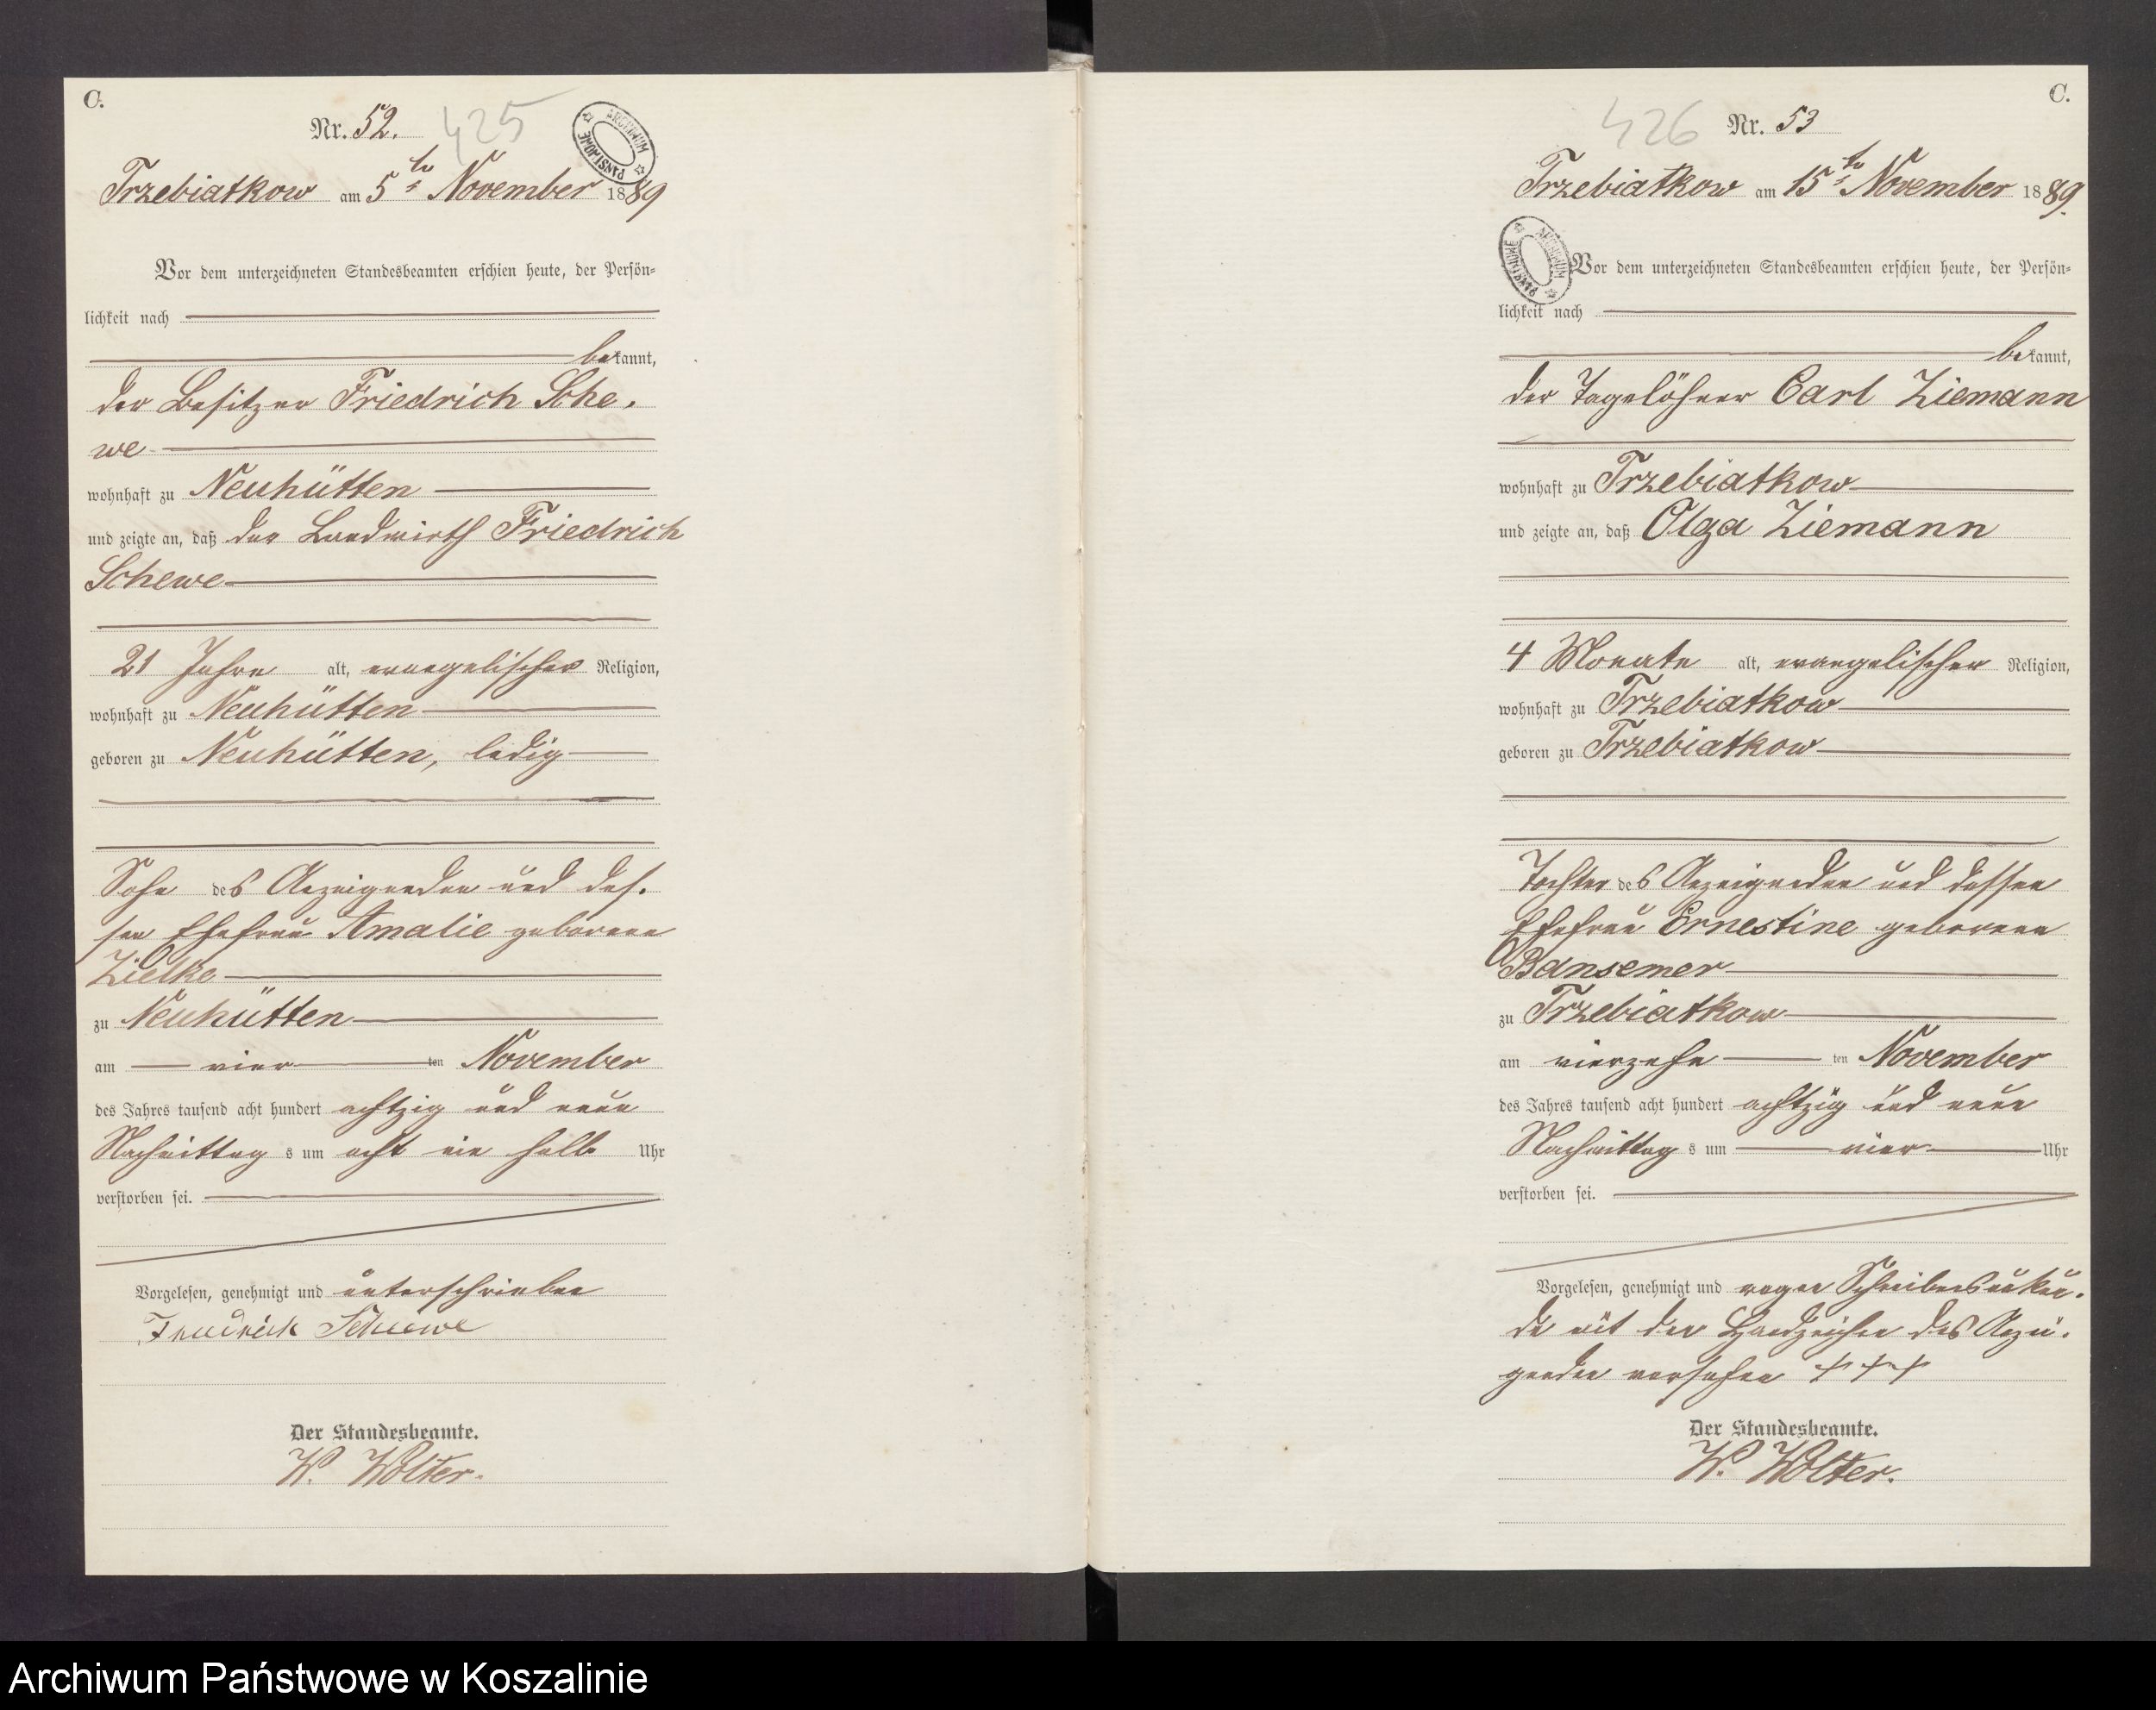 C.
Nr. 52. 425
ARCHIWUM PAŃSTWOWE
Trzebiatkow am 5ten November 1889
Vor dem unterzeichneten Standesbeamten erschien heute, der Persön=
lichkeit nach
bekannt,
der Besitzer Friedrich Sche.
we
wohnhaft zu Neuhütten
und zeigte an, daß der Landwirth Friedrich
Schewe
21 Jahre alt, evangelischer Religion,
wohnhaft zu Neuhütten
geboren zu Neuhütten, ledig
Sohn des Anzeigenden und des.
sen Ehefrau Amalie geborene
Zielke
zu Neuhütten
am vier ten November
des Jahres tausend acht hundert achtzig und neun
Nachmittag s um acht ein halb Uhr
verstorben sei.
Vorgelesen, genehmigt und unterschrieben
Friedrich Schewe
Der Standesbeamte.
W. Wolter.
C.
426 Nr. 53
Trzebiatkow am 15ten November 1889.
ARCHIWUM PAŃSTWOWE
Vor dem unterzeichneten Standesbeamten erschien heute, der Persön=
lichkeit nach
bekannt,
der Tagelöhner Carl Ziemann
wohnhaft zu Trzebiatkow
und zeigte an, daß Olga Ziemann
4 Monate alt, evangelischer Religion,
wohnhaft zu Trzebiatkow
geboren zu Trzebiatkow
Tochter des Anzeigenden und dessen
Ehefrau Ernestine geborene
Bansemer
zu Trzebiatkow
am vierzehn ten November
des Jahres tausend acht hundert achtzig und neun
Nachmittag s um vier Uhr
verstorben sei.
Vorgelesen, genehmigt und wegen Schreibensunkun.
de mit den Handzeichen des Anzei.
genden versehen + + +
Der Standesbeamte.
W. Wolter.
Archiwum Państwowe w Koszalinie